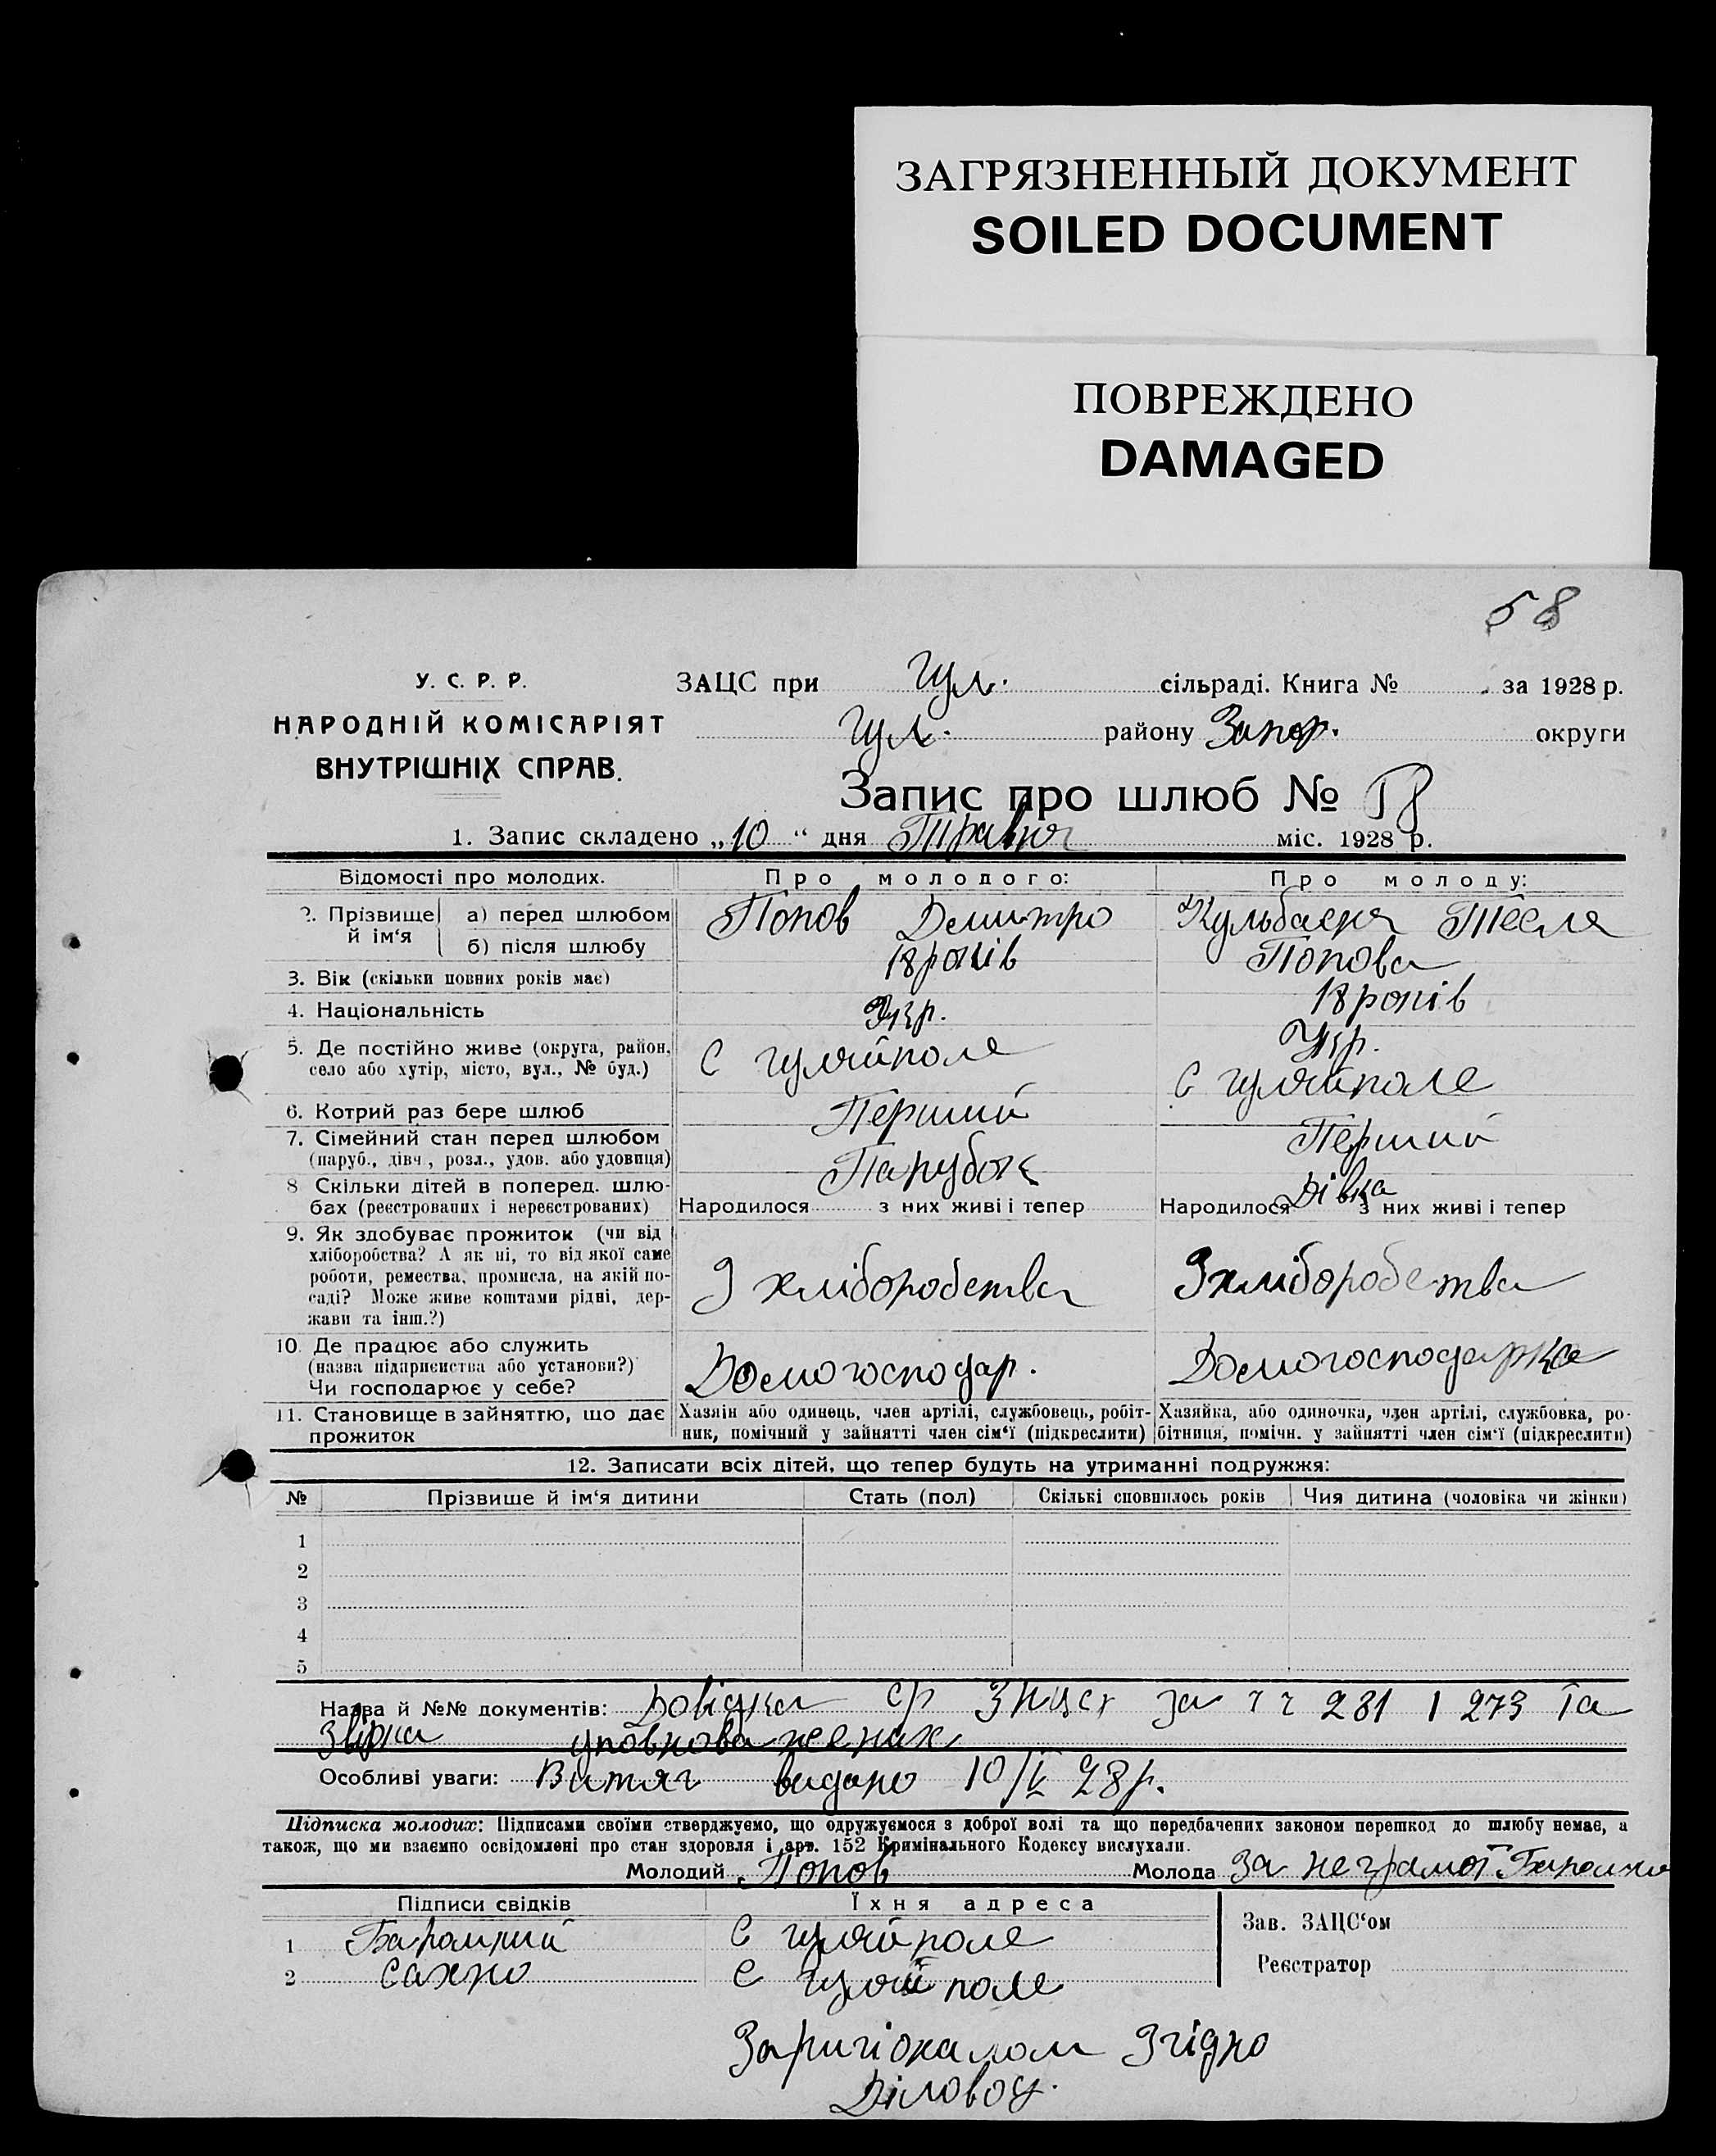 ЗАГРЯЗНЕННЫЙ ДОКУМЕНТ
SOILED DOCUMENT
ПОВРЕЖДЕНО
DAMAGED
58
У. С. Р. Р.
НАРОДНІЙ КОМІСАРІЯТ
ВНУТРІШНІХ СПРАВ.
ЗАЦС при Гул. сільраді. Книга № за 1928 р.
Гул. району Запор. округи
Запис про шлюб №
1. Запис складено „10“ дня Травня міс. 1928 р.
Відомості про молодих. Про молодого: Про молоду:
2. Прізвище й ім‘я а) перед шлюбом Попов Демитро Кульбаєня Тёсля
б) після шлюбу Попова
3. Вік (скільки повних років має) 18 років 18 років
4. Національність Укр. Укр.
5. Де постійно живе (округа, район, село або хутір, місто, вул., № буд.) С Гуляйполе С Гуляйполе
6. Котрий раз бере шлюб Перший Перший
7. Сімейний стан перед шлюбом (паруб., дівч., розл., удов. або удовиця) Парубок Дівка
8 Скільки дітей в поперед. шлюбах (реєстрованих і нереєстрованих) Народилося з них живі і тепер Народилося з них живі і тепер
9. Як здобуває прожиток (чи від хліборобства? А як ні, то від якої саме роботи, ремества, промисла, на якій посаді? Може живе коштами рідні, держави та інш.?) З хліборобства З хліборобства
10. Де працює або служить (назва підприємства або установи?) Чи господарює у себе? Домогосподар. Домогосподарка
11. Становище в зайняттю, що дає прожиток Хазяїн або одинець, член артілі, службовець, робітник, помічний у зайнятті член сім‘ї (підкреслити) Хазяйка, або одиночка, член артілі, службовка, робітниця, помічн. у зайнятті член сім‘ї (підкреслити)
12. Записати всіх дітей, що тепер будуть на утриманні подружжя:
№ Прізвище й ім‘я дитини Стать (пол) Скількі сповнилось років Чия дитина (чоловіка чи жінки)
1
2
3
4
5
Назва й №№ документів: Довідка за ч ч 281 і 273 та
Звірка уповноваженах
Особливі уваги: Витяг видано 10/V 28 р.
Підписка молодих: Підписами своїми стверджуємо, що одружуємося з доброї волі та що передбачених законом перешкод до шлюбу немає, а
також, що ми взаємно освідомлені про стан здоровля і арт. 152 Кримінального Кодексу вислухали.
Молодий Попов Молода За неграмот
Підписи свідків Їхня адреса Зав. ЗАЦС‘ом
1 С Гуляйполе
2 Сахно С Гуляйполе Реєстратор
Згідно
Діловод.